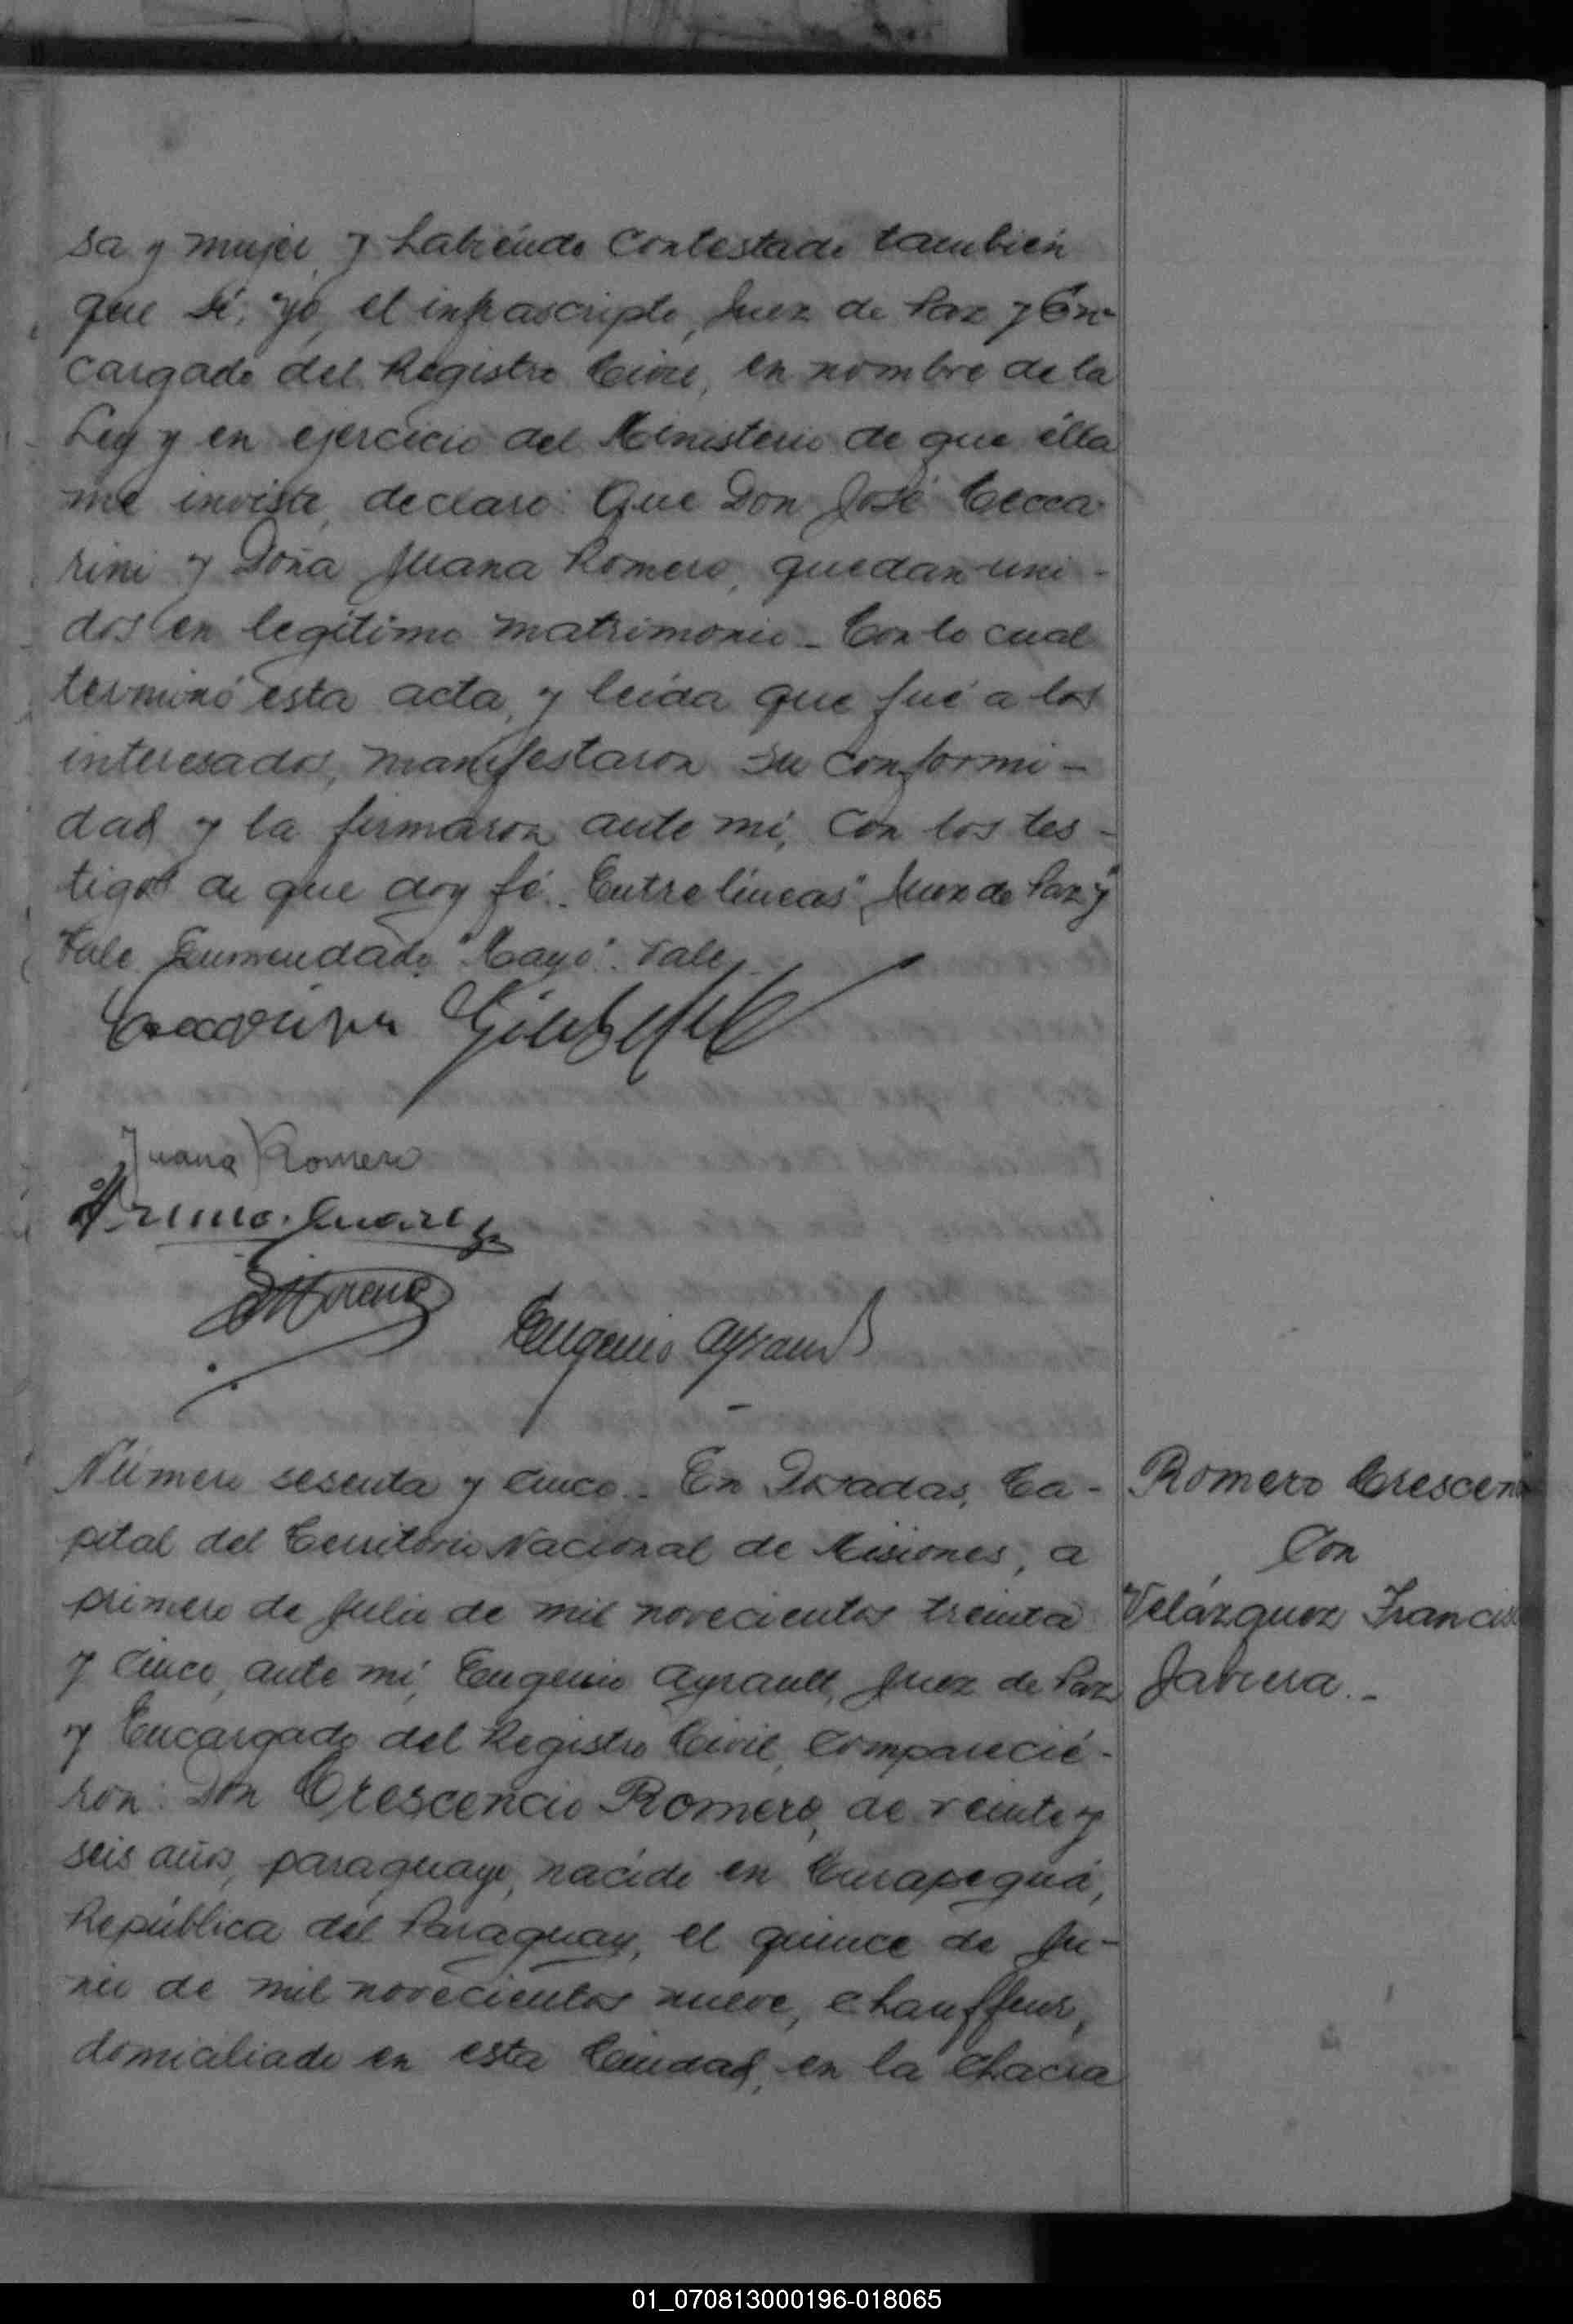 sa y mujer, y habiendo contestado también
que sí, yo, el infrascripto, Juez de Paz y En-
cargado del Registro Civil, en nombre de la
Ley y en ejercicio del Ministerio de que élla
me inviste, declaro: Que Don José Cecca-
rini y Doña Juana Romero, quedan uni-
dos en legítimo matrimonio - Con lo cual
terminó esta acta, y leída que fué a los
interesados, manifestaron su conformi-
dad y la firmaron ante mí, con los tes-
tigos de que doy fé. Entre líneas "Juez de Paz y"
Vale Enmendado "Mayo". Vale
Juana Romero
Eugenio Ayrault
Número sesenta y cinco.- En Posadas, Ca-
pital del Territorio Nacional de Misiones, a
primero de Julio de mil novecientos treinta
y cinco, ante mí, Eugenio Ayrault, Juez de Paz
y Encargado del Registro Civil, comparecie-
ron: Don Crescencio Romero, de veinte y
seis años, paraguayo, nacido en Carapeguá,
República del Paraguay, el quince de Ju-
nio de mil novecientos nueve, chauffeur,
domiciliado en esta Ciudad, en la chacra
Romero Crescen
Con
Velázquez Francis
Javiera.-
01_070813000196-018065